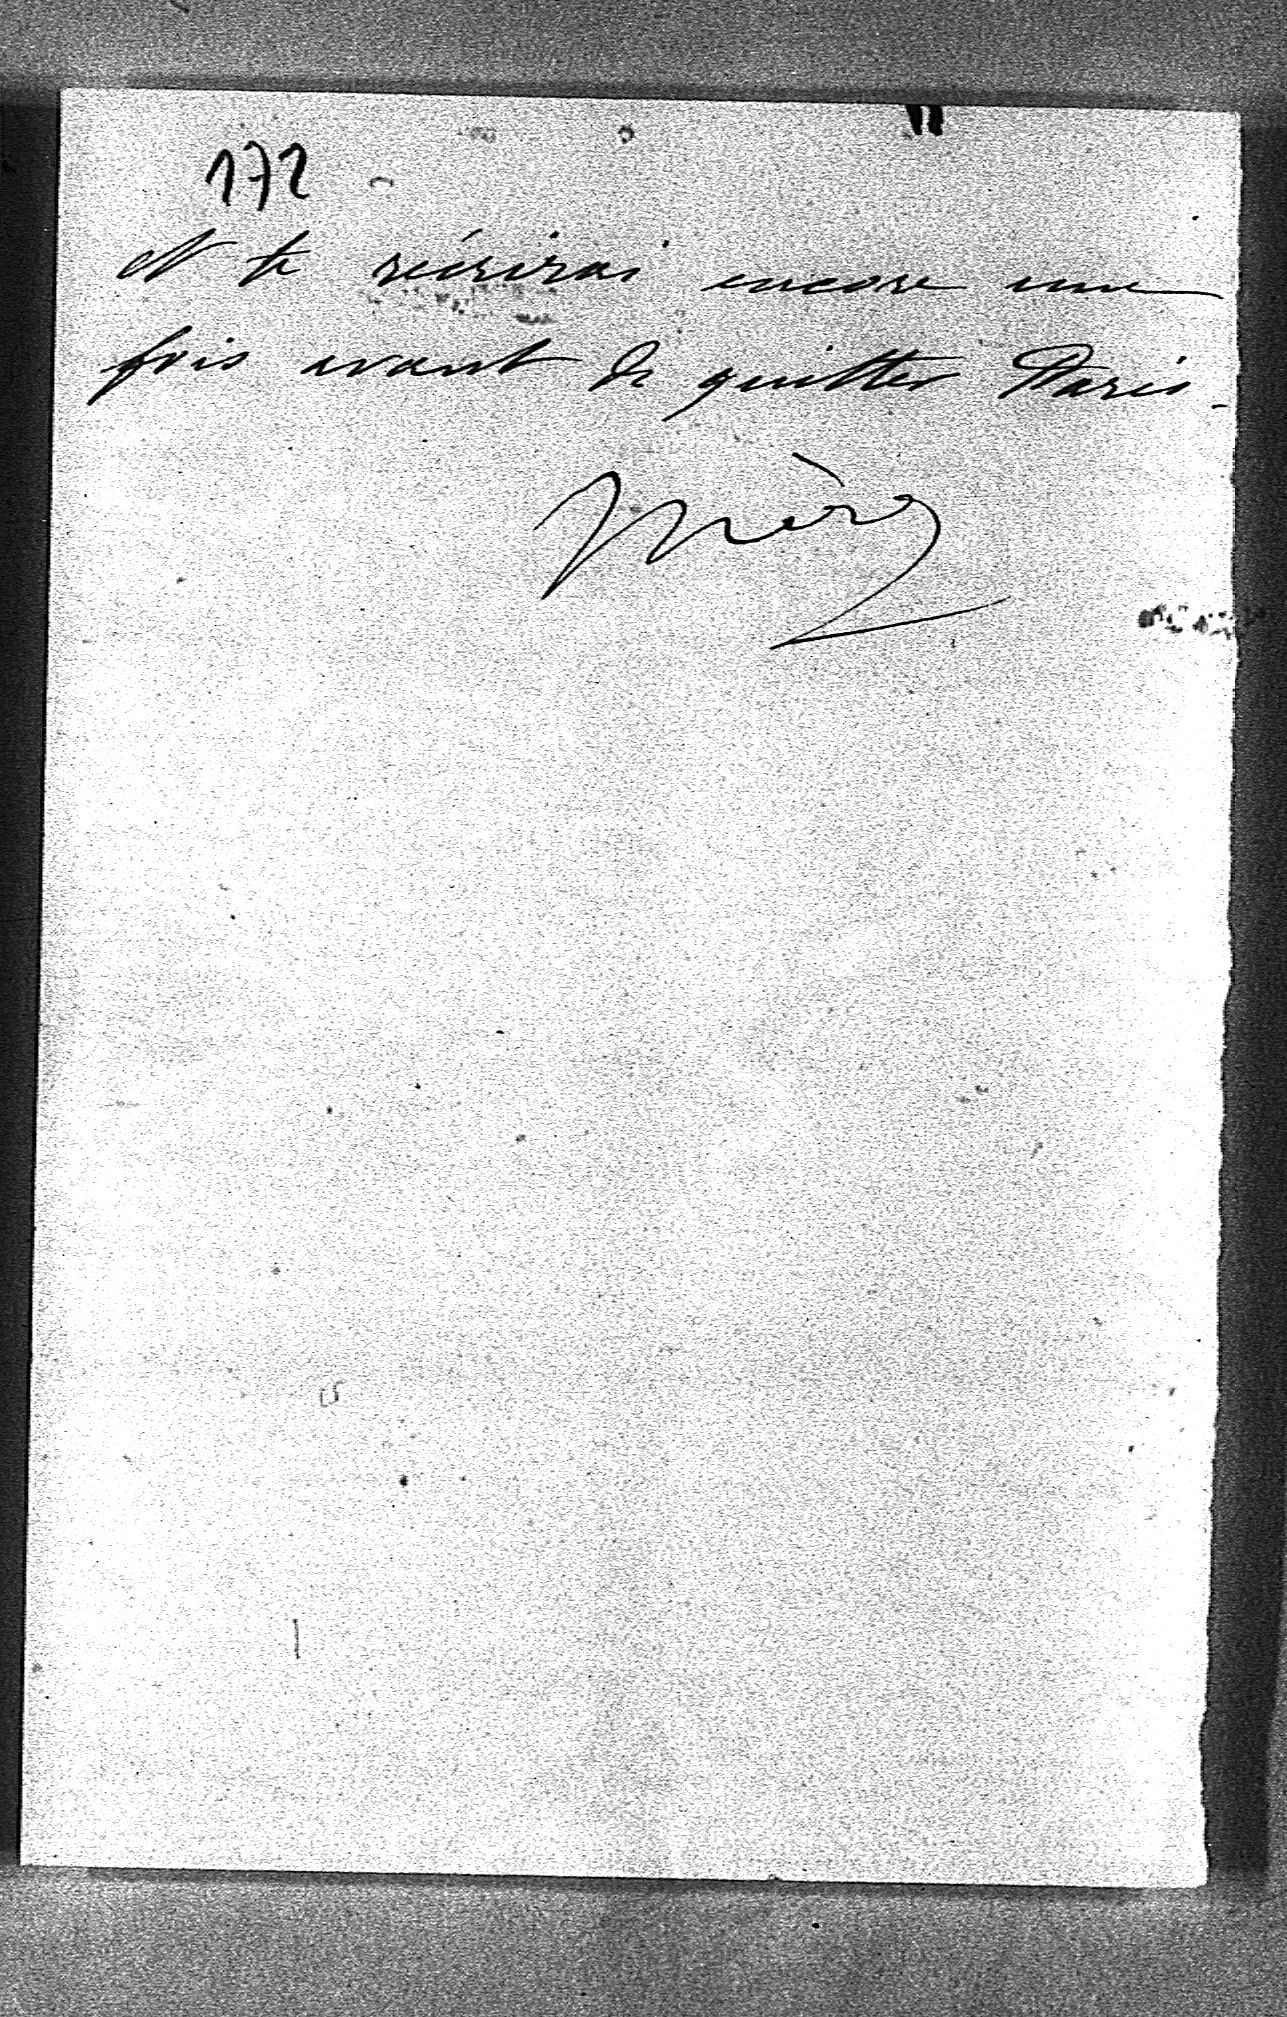 172
et te récrirai encore une
fois avant de quitter Paris.
Mère